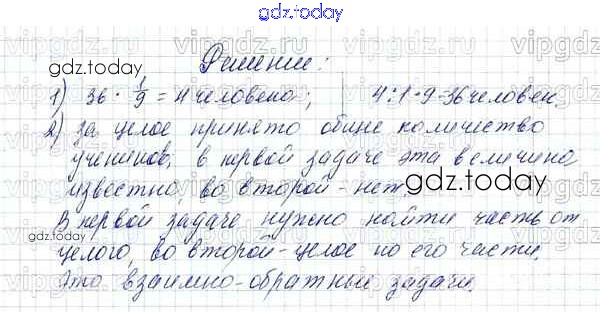 gdz.today
Решение:
gdz.today
1) 36 · 1/9 = 4 человека; 4 : 1 · 9 = 36 человек.
2) за целое принято общие количество
учеников, в первой задаче эта величина
известно, во второй - нет.
gdz.today
В первой задаче нужно найти часть от
gdz.today
целого, во второй - целое по его части.
Это взаимно-обратные задачи.